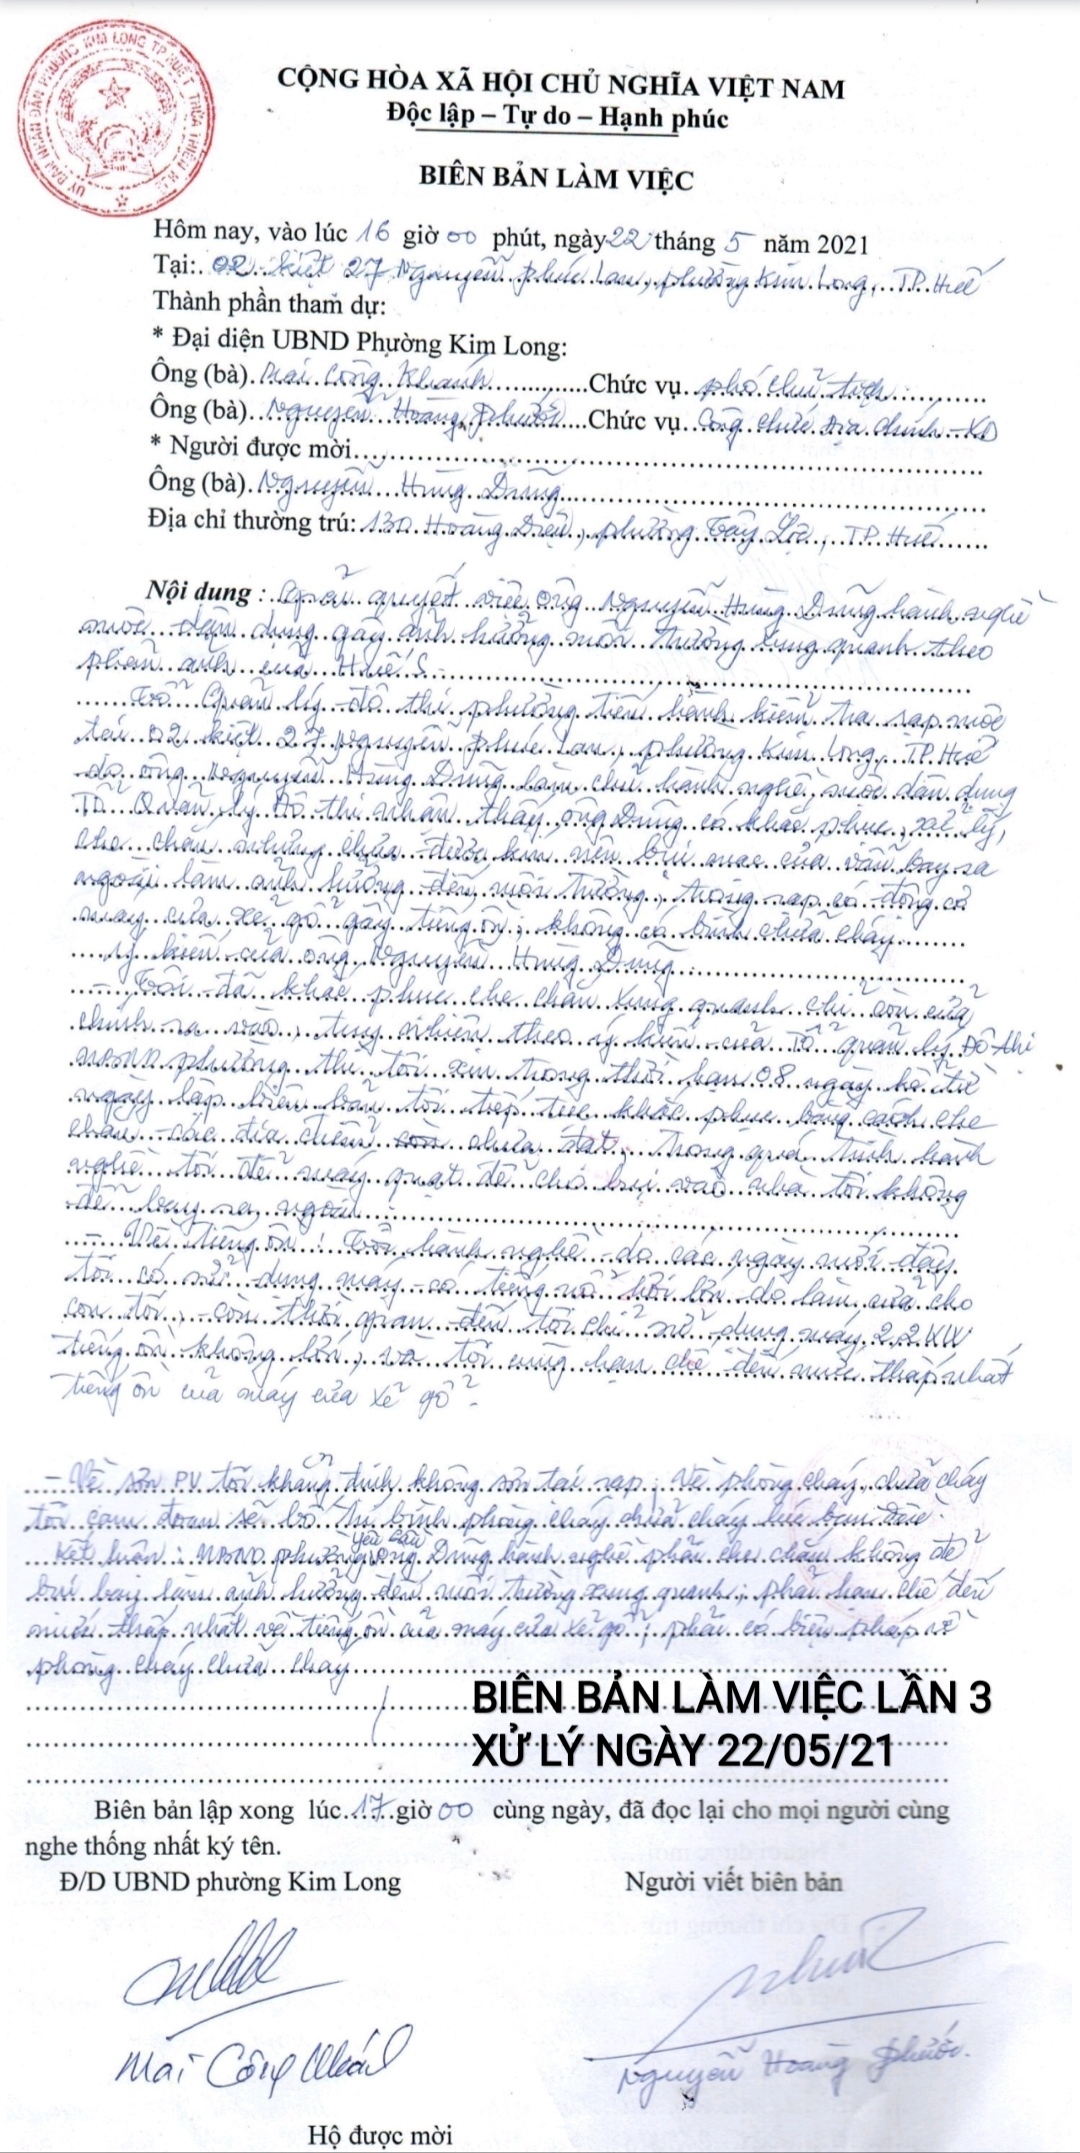 ỦY BAN NHÂN DÂN PHƯỜNG KIM LONG TP.HUẾ T.THỪA THIÊN HUẾ
CỘNG HÒA XÃ HỘI CHỦ NGHĨA VIỆT NAM
Độc lập – Tự do – Hạnh phúc
BIÊN BẢN LÀM VIỆC
Hôm nay, vào lúc 16 giờ 00 phút, ngày 22 tháng 5 năm 2021
Tại: 02 kiệt 27 Nguyễn Phúc Lan, phường Kim Long, TP. Huế
Thành phần tham dự:
* Đại diện UBND Phường Kim Long:
Ông (bà) Mai Công Khánh Chức vụ phó chủ tịch
Ông (bà) Nguyễn Hoàng Phước Chức vụ Công chức Địa chính - XD
* Người được mời
Ông (bà) Nguyễn Hùng Dũng
Địa chỉ thường trú: 130 Hoàng Diệu, phường Tây Lộc, TP. Huế
Nội dung : Giải quyết việc ông Nguyễn Hùng Dũng hành nghề
mộc dân dụng gây ảnh hưởng môi trường xung quanh theo
phản ánh của Huế S.
Tổ Quản lý đô thị phường tiến hành kiểm tra rạp mộc
tại 02 kiệt 27 Nguyễn Phúc Lan, phường Kim Long, TP. Huế
do ông Nguyễn Hùng Dũng làm chủ hành nghề mộc dân dụng
Tổ Quản lý Đô thị nhận thấy ông Dũng có khắc phục, xử lý,
che chắn nhưng chưa được kín nên bụi mạc cưa vẫn bay ra
ngoài làm ảnh hưởng đến môi trường; trong rạp có động cơ
máy cưa xẻ gỗ gây tiếng ồn; không có bình chữa cháy.
Ý kiến của ông Nguyễn Hùng Dũng:
- Tôi đã khắc phục che chắn xung quanh chỉ còn cửa
chính ra vào, tuy nhiên theo ý kiến của Tổ quản lý Đô thị
UBND phường thì tôi xin trong thời hạn 08 ngày kể từ
ngày lập biên bản tôi tiếp tục khắc phục bằng cách che
chắn các địa điểm chưa đạt, trong quá trình hành
nghề tôi để máy quạt để cho bụi vào nhà tôi không
để bay ra ngoài.
- Về tiếng ồn: Tôi hành nghề do các ngày mới đây
tôi có sử dụng máy có tiếng nổ hơi lớn do làm cửa cho
con tôi, còn thời gian đến tôi chỉ sử dụng máy 2,2 KW
tiếng ồn không lớn, và tôi cũng hạn chế đến mức thấp nhất
tiếng ồn của máy cưa xẻ gỗ.
- Về sơn PV tôi khẳng định không sơn tại rạp; Về phòng cháy, chữa cháy
tôi cam đoan sẽ bố trí bình phòng cháy chữa cháy lúc ban đầu.
Kết luận: UBND phường yêu cầu ông Dũng hành nghề phải che chắn không để
bụi bay làm ảnh hưởng đến môi trường xung quanh; phải hạn chế đến
mức thấp nhất về tiếng ồn của máy cưa xẻ gỗ; phải có biện pháp về
phòng cháy chữa cháy
BIÊN BẢN LÀM VIỆC LẦN 3
XỬ LÝ NGÀY 22/05/21
Biên bản lập xong lúc 17 giờ 00 cùng ngày, đã đọc lại cho mọi người cùng
nghe thống nhất ký tên.
Đ/D UBND phường Kim Long Người viết biên bản
Mai Công Khánh Nguyễn Hoàng Phước
Hộ được mời